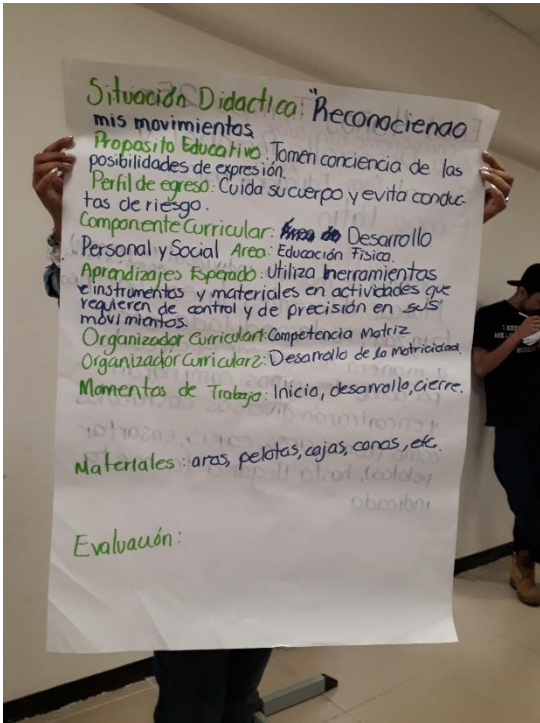 Situación Didactica: "Reconociendo
mis movimientos
Proposito Educativo: Tomen conciencia de las
posibilidades de expresión.
Perfil de egreso: Cuida su cuerpo y evita conduc-
tas de riesgo.
Componente Curricular: Desarrollo
Personal y Social Area: Educación Física.
Aprendizajes Esperado: Utiliza herramientas
e instrumentos y materiales en actividades que
requieren de control y de precisión en sus
movimientos.
Organizador Curricular1: Competencia Motriz
Organizador Curricular2: Desarrollo de la motricidad.
Momentos de Trabajo: Inicio, desarrollo, cierre.
Materiales: aros, pelotas, cajas, conos, etc.
Evaluación: